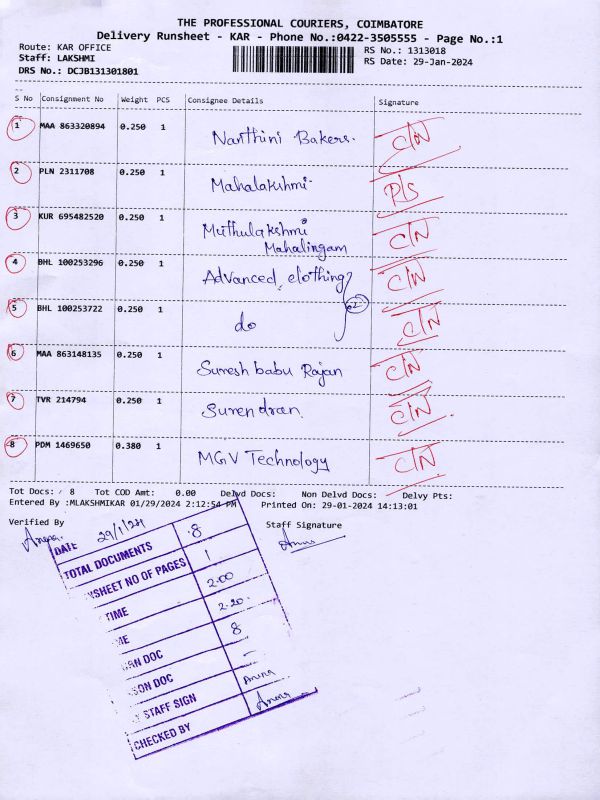 THE PROFESSIONAL COURIERS, COIMBATORE
Delivery Runsheet - KAR - Phone No.:0422-3505555 - Page No.:1
Route: KAR OFFICE
RS No.: 1313018
Staff: LAKSHMI
RS Date: 29-Jan-2024
DRS No.: DCJB131301801
S No Consignment No Weight PCS Consignee Details Signature
1 MAA 863320894 0.250 1 Nanthini Bakers. C/N
2 PLN 2311708 0.250 1 Mahalakshmi P/S
3 KUR 695482520 0.250 1 Muthulakshmi
Mahalingam C/N
4 BHL 100253296 0.250 1 Advanced clothing C/N
5 BHL 100253722 0.250 1 do 02 C/N
6 MAA 863148135 0.250 1 Suresh babu Rajan C/N
7 TVR 214794 0.250 1 Surendran. C/N
8 PDM 1469650 0.380 1 MGV Technology C/N
Tot Docs: 8 Tot COD Amt: 0.00 Delvd Docs: Non Delvd Docs: Delvy Pts:
Entered By :MLAKSHMIKAR 01/29/2024 2:12:54 PM Printed On: 29-01-2024 14:13:01
Verified By Staff Signature
DATE 29/1/24
TOTAL DOCUMENTS 8
NSHEET NO OF PAGES 1
TIME 2.00
ME 2.20
RN DOC 8
SON DOC -
STAFF SIGN
CHECKED BY